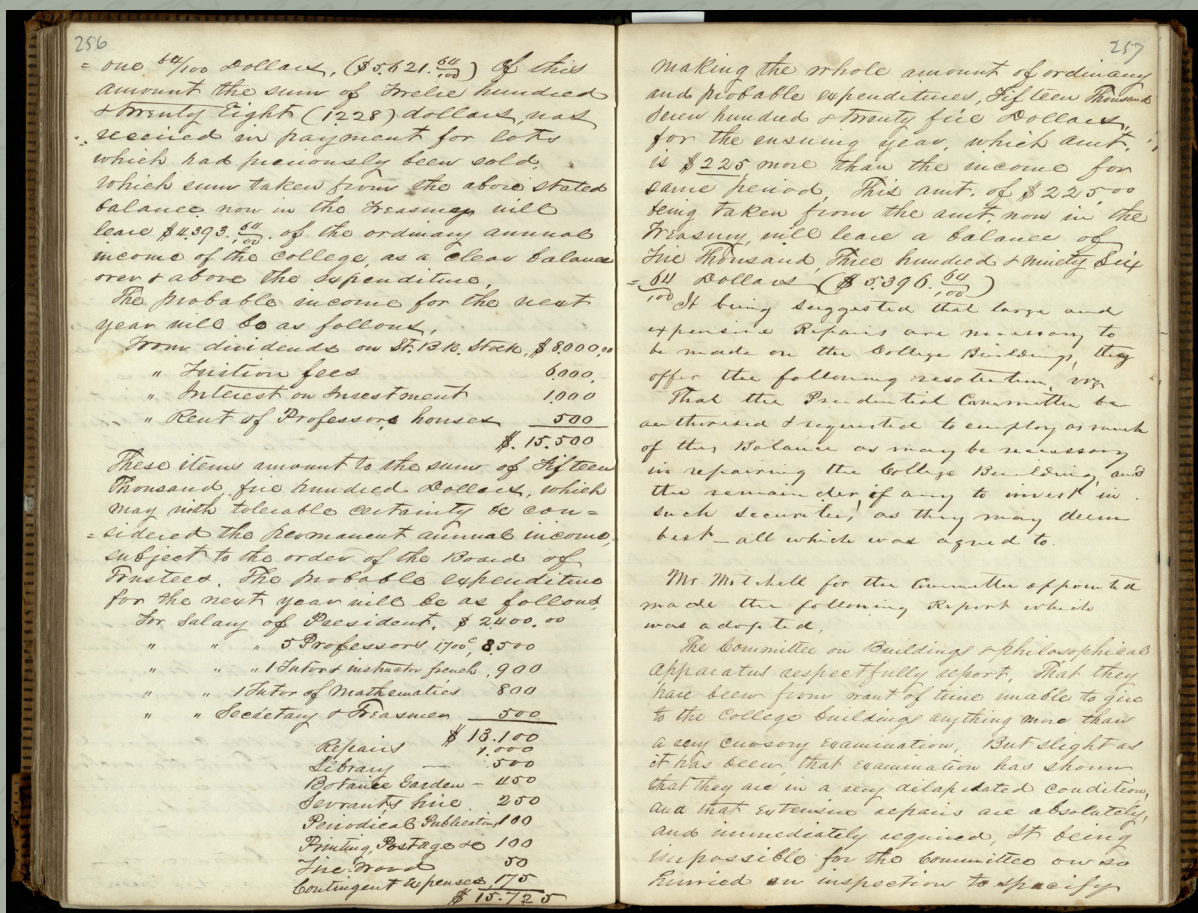 256
= one 64/100 Dollars, ($5.621. 64/100) Of this
amount the sum of Twelve hundred
& Twenty Eight (1228) dollars, was
received in payment for lots
which had previously been sold,
which sum taken from the above stated
balance now in the Treasury will
leave $4.393. 64/100. of the ordinary annual
income of the College, as a clear balance
over & above the Expenditure.
The probable income for the next
year will be as follows,
From dividends on St. Bk. Stock, $8,000.00
" Tuition fees 6.000,
" Interest on Investment 1,000
" Rent of Professors houses 500
$. 15.500
These items amount to the sum of Fifteen
Thousand five hundred Dollars, which
may with tolerable certainty be con=
=sidered the permanent annual income,
subject to the order of the Board of
Trustees. The probable expenditure
for the next year will be as follows
For Salary of President. $2400.00
" " " 5 Professors 1700 c, 8.500
" " " 1 Tutor & instructor french, 900
" " 1 Tutor of Mathematics 800
" " Secretary & Treasurer 500
$13.100
Repairs 1.000
Library — 500
Botanic Garden - 450
Servants hire. 250
Periodical Publications 100
Printing, Postage &c 100
Fire Wood 50
Contingent Expenses, 175
$15.725
257
making the whole amount of ordinary
and probable expenditures, Fifteen Thousand
Seven hundred & twenty five Dollars,
for the ensuing year, which amt.
is $225, more than the income for
same period. This amt. of $225,00
being taken from the amt. now in the
Treasury, will leave a balance of
Five Thousand, Three hundred & ninety Six
= 64/100 Dollars ($5.396. 64/100)
It being suggested that large and
expensive Repairs are necessary to
be made on the College Buildings, they
offer the following resolution, viz
That the Prudential Committee be
authorised & requested to employ as much
of this Balance as may be necessary
in repairing the College Building, and
the remainder, if any to invest in
such securities, as they may deem
best — all which was agreed to.
Mr. Mitchell for the Committee appointed
made the following Report which
was adopted,
The Committee on Buildings & philosophical
apparatus respectfully report, That they
have been from want of time unable to give
to the College buildings anything more than
a very cursory examination, But slight as
it has been, that examination has shown
that they are in a very dilapidated condition,
and that extensive repairs are absolutely,
and immediately required, It being
impossible for the Committee on so
hurried an inspection to specify